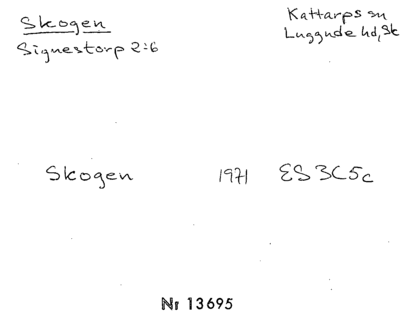 Skogen
Signestorp 2:6
Kattarps sn
Luggude hd, Sk
Skogen 1971 ES 3C5c
Nr 13695